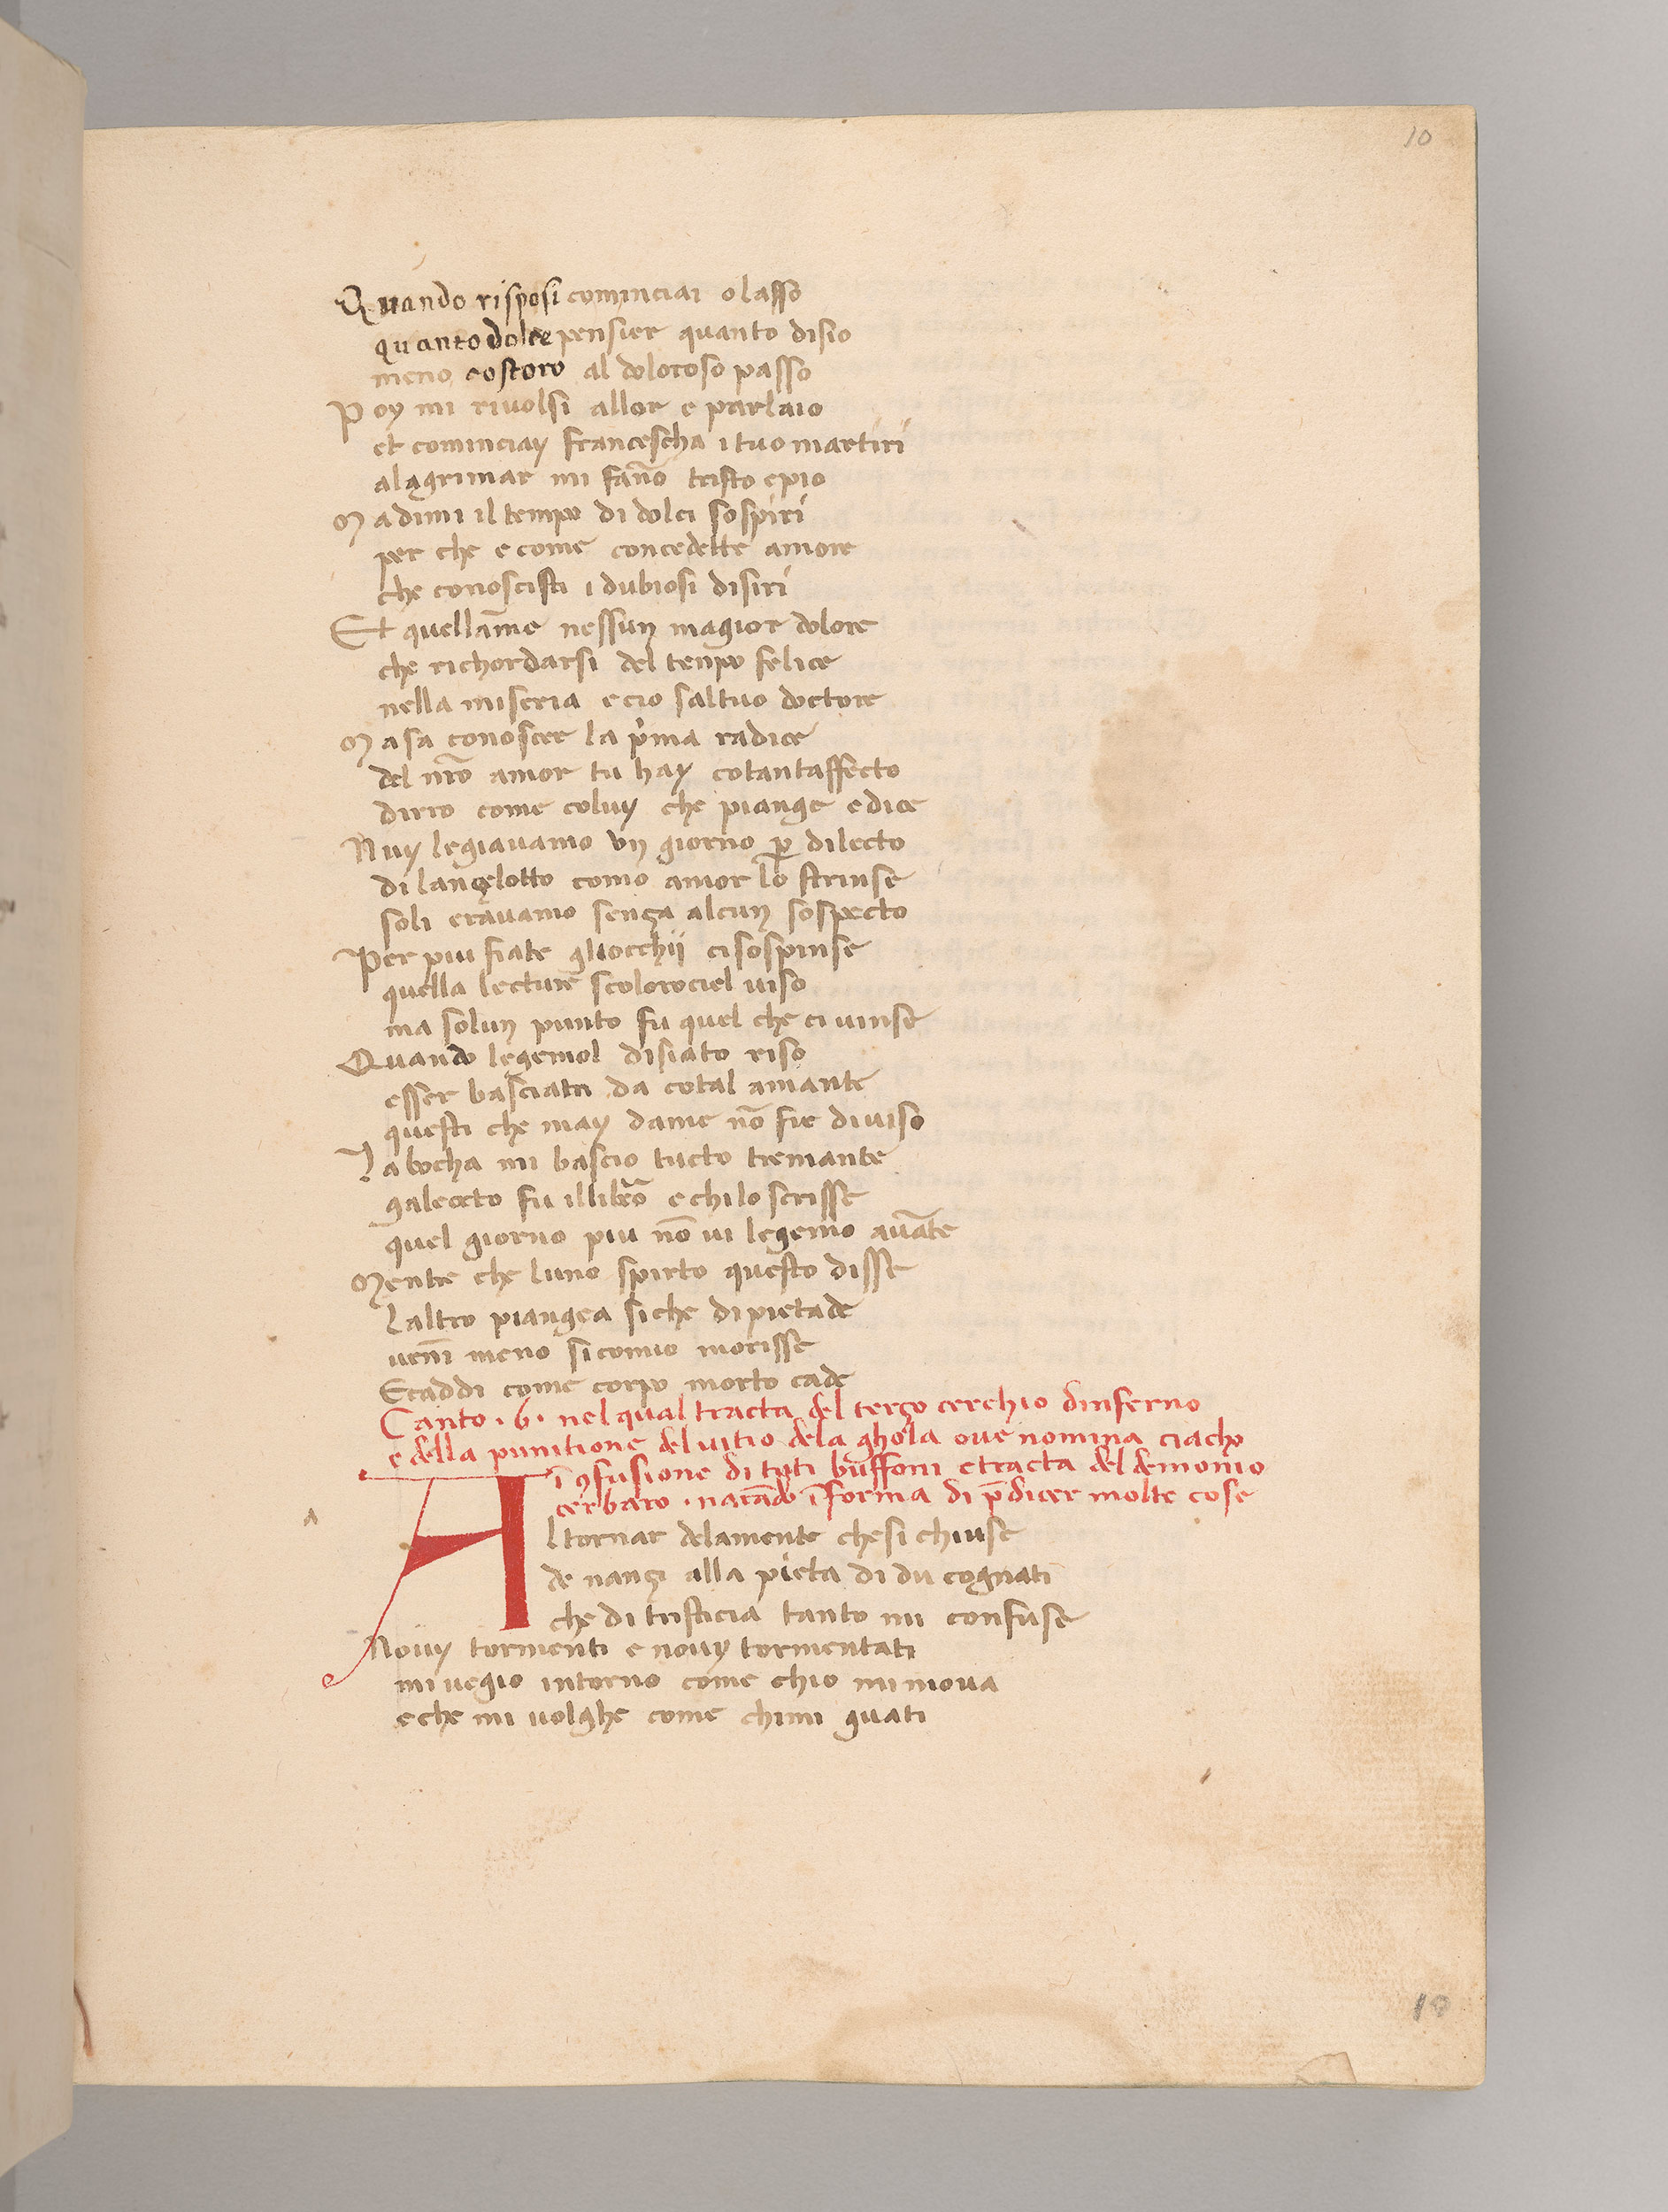 10
Quando risposi cominciai o lasso
quanto dolce pensier quanto disio
meno costoro al doloroso passo
Poy mi rivolsi allor e parlaio
et cominciay francescha i tuo martiri
alagrimar mi fan̄o tristo epio
Madimi il tempo di dolci sospiri
per che e come concedette amore
che conoscisti i dubiosi disiri
Et quella̅me nessun magior dolore
che richordarsi del tenpo felice
nella miseria e cio saltuo doctore
Masa conoscer la p̓ma radice
del nr̄o amor tu hay cotantaffecto
dirro come coluy che piange e dice
Nuy legiauamo vn giorno ꝑ dilecto
di lançelotto como amor lo strinse
soli erauamo sença alcun sospecto
Per piu fiate gliocchij ci sospinse
quella lecture scolorociel uiso
ma solun punto fu quel che ci uinse
Quando legemol disiato riso
esser basciati da cotal amante
questi che may dame no̅ fie diuiso
La bocha mi bascio tucto tremante
galeocto fu illibr̄o e chi lo scrisse
quel giorno piu no̅ ui legemo aua̅te
Mentre che luno spirto questo disse
laltro piangea siche di pietade
uen̅i meno si comio morisse
Ecaddi come corpo morto cade
Canto · 6 · nel qual tracta del terço cerchio dinferno
e della punitione del uitio dela ghola oue nomina ciacho
i̅ ꝯfusione di tuti buffoni e tracta del demonio
cerbaro · nara̅do i̅ forma di p̅dicer molte cose
A
Altornar delamente chesi chiuse
de nançi alla pieta di du cognati
che di tristicia tanto mi confuse
Nouy tormenti e nouy tormentati
mi uegio intorno come chio mi moua
e che mi uolghe come chimi guati
10